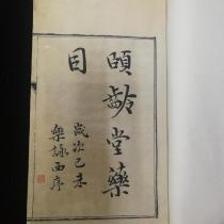 頤齡堂藥
目
歲次己未
樂詠西序